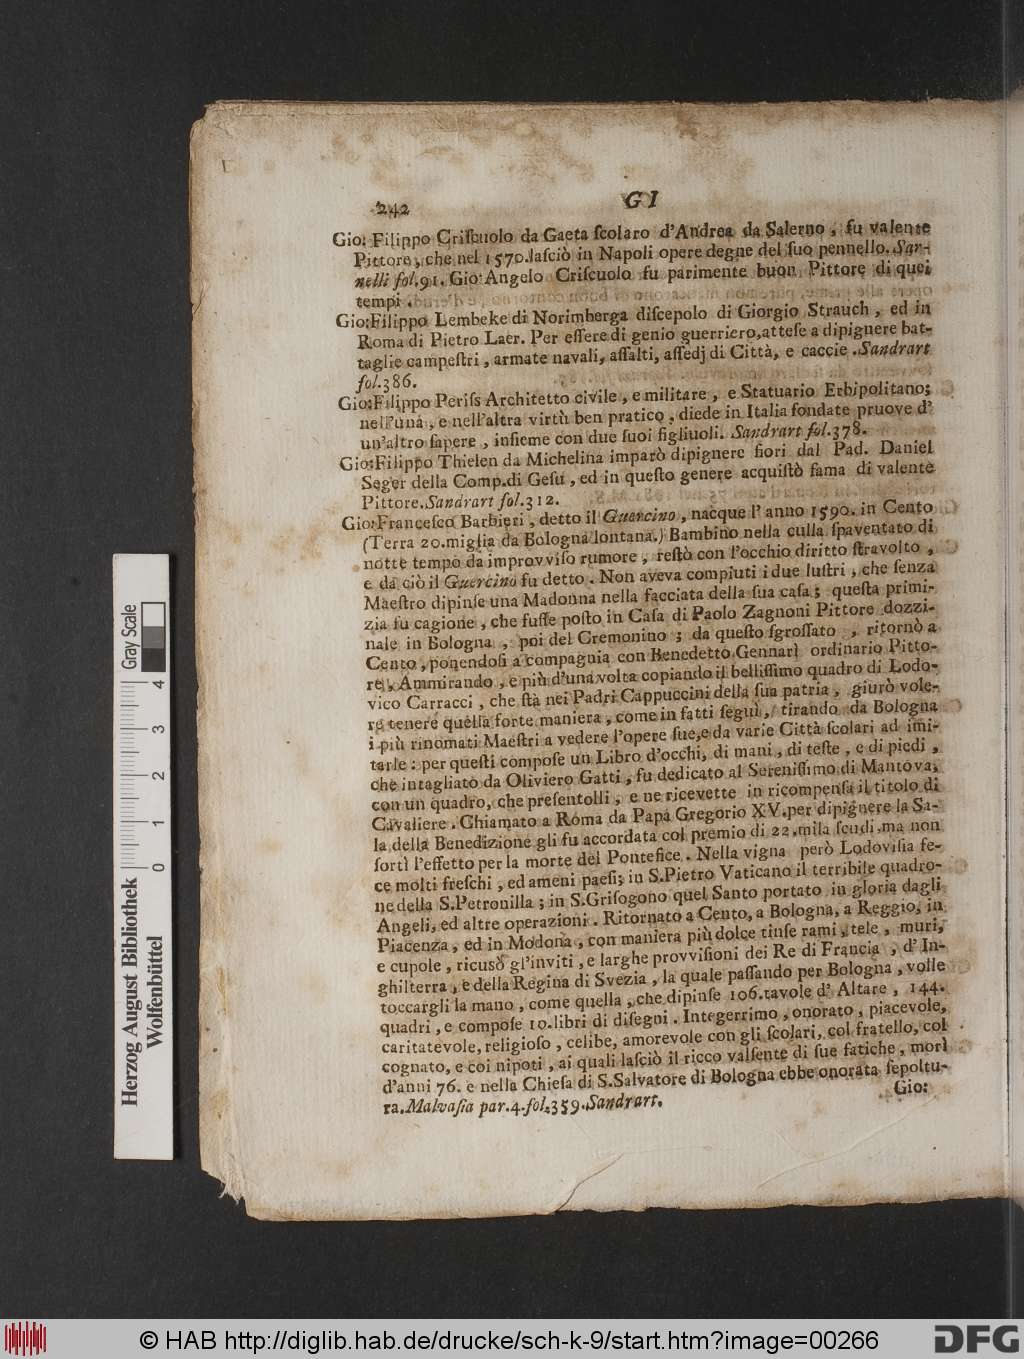 242
GI
Gio: Filippo Criſcuolo da Gaeta ſcolaro d'Andrea da Salerno, fu valente
Pittore, che nel 1570. laſciò in Napoli opere degne del ſuo pennello. Sar-
nelli fol. 91. Gio: Angelo Criſcuolo fu parimente buon Pittore di quei
tempi.
Gio: Filippo Lembeke di Norimberga diſcepolo di Giorgio Strauch, ed in
Roma di Pietro Laer. Per eſſere di genio guerriero, atteſe a dipignere bat-
taglie campeſtri, armate navali, aſſalti, aſſedj di Città, e caccie. Sandrart
fol. 386.
Gio: Filippo Periſs Architetto civile, e militare, e Statuario Erbipolitano;
nell'una, e nell'altra virtù ben pratico, diede in Italia fondate pruove d'
un'altro ſapere, inſieme con due ſuoi figliuoli. Sandrart fol. 378.
Gio: Filippo Thielen da Michelina imparò dipignere fiori dal Pad. Daniel
Seger della Comp. di Geſu, ed in queſto genere acquiſtò fama di valente
Pittore. Sandrart fol. 312.
Gio: Franceſco Barbieri, detto il Guercino, nacque l'anno 1590. in Cento
(Terra 20. miglia da Bologna lontana.) Bambino nella culla ſpaventato di
notte tempo da improvviſo rumore, reſtò con l'occhio diritto ſtravolto,
e da ciò il Guercino fu detto. Non aveva compiuti i due luſtri, che ſenza
Maeſtro dipinſe una Madonna nella facciata della ſua caſa; queſta primi-
zia fu cagione, che fuſſe poſto in Caſa di Paolo Zagnoni Pittore dozzi-
nale in Bologna, poi del Cremonino; da queſto ſgroſſato, ritornò a
Cento, ponendoſi a compagnia con Benedetto Gennari ordinario Pitto-
re. Ammirando, e più d'una volta copiando il belliſſimo quadro di Lodo-
vico Carracci, che ſtà nei Padri Cappuccini della ſua patria, giurò vole-
re tenere quella forte maniera, come in fatti ſeguì, tirando da Bologna
i più rinomati Maeſtri a vedere l'opere ſue, e da varie Città ſcolari ad imi-
tarle: per queſti compoſe un Libro d'occhi, di mani, di teſte, e di piedi,
che intagliato da Oliviero Gatti, fu dedicato al Sereniſſimo di Mantova,
con un quadro, che preſentolli, e ne ricevette in ricompenſa il titolo di
Cavaliere. Chiamato a Roma da Papa Gregorio XV. per dipignere la Sa-
la della Benedizione gli fu accordata col premio di 22. mila ſcudi, ma non
ſortì l'effetto per la morte del Pontefice. Nella vigna però Lodoviſia fe-
ce molti freſchi, ed ameni paeſi; in S. Pietro Vaticano il terribile quadro-
ne della S. Petronilla; in S. Griſogono quel Santo portato in gloria dagli
Angeli, ed altre operazioni. Ritornato a Cento, a Bologna, a Reggio, in
Piacenza, ed in Modona, con maniera più dolce tinſe rami, tele, muri,
e cupole, ricusò gl'inviti, e larghe provviſioni dei Re di Francia, d'In-
ghilterra, e della Regina di Svezia, la quale paſſando per Bologna, volle
toccargli la mano, come quella, che dipinſe 106. tavole d'Altare, 144.
quadri, e compoſe 10. libri di diſegni. Integerrimo, onorato, piacevole,
caritatevole, religioſo, celibe, amorevole con gli ſcolari, col fratello, col
cognato, e coi nipoti, ai quali laſciò il ricco valſente di ſue fatiche, morì
d'anni 76. e nella Chieſa di S. Salvatore di Bologna ebbe onorata ſepoltu-
ra. Malvaſia par. 4. fol. 359. Sandrart.
Gio:
Herzog August Bibliothek
Wolfenbüttel
0 1 2 3 4
Gray Scale
© HAB http://diglib.hab.de/drucke/sch-k-9/start.htm?image=00266
DFG